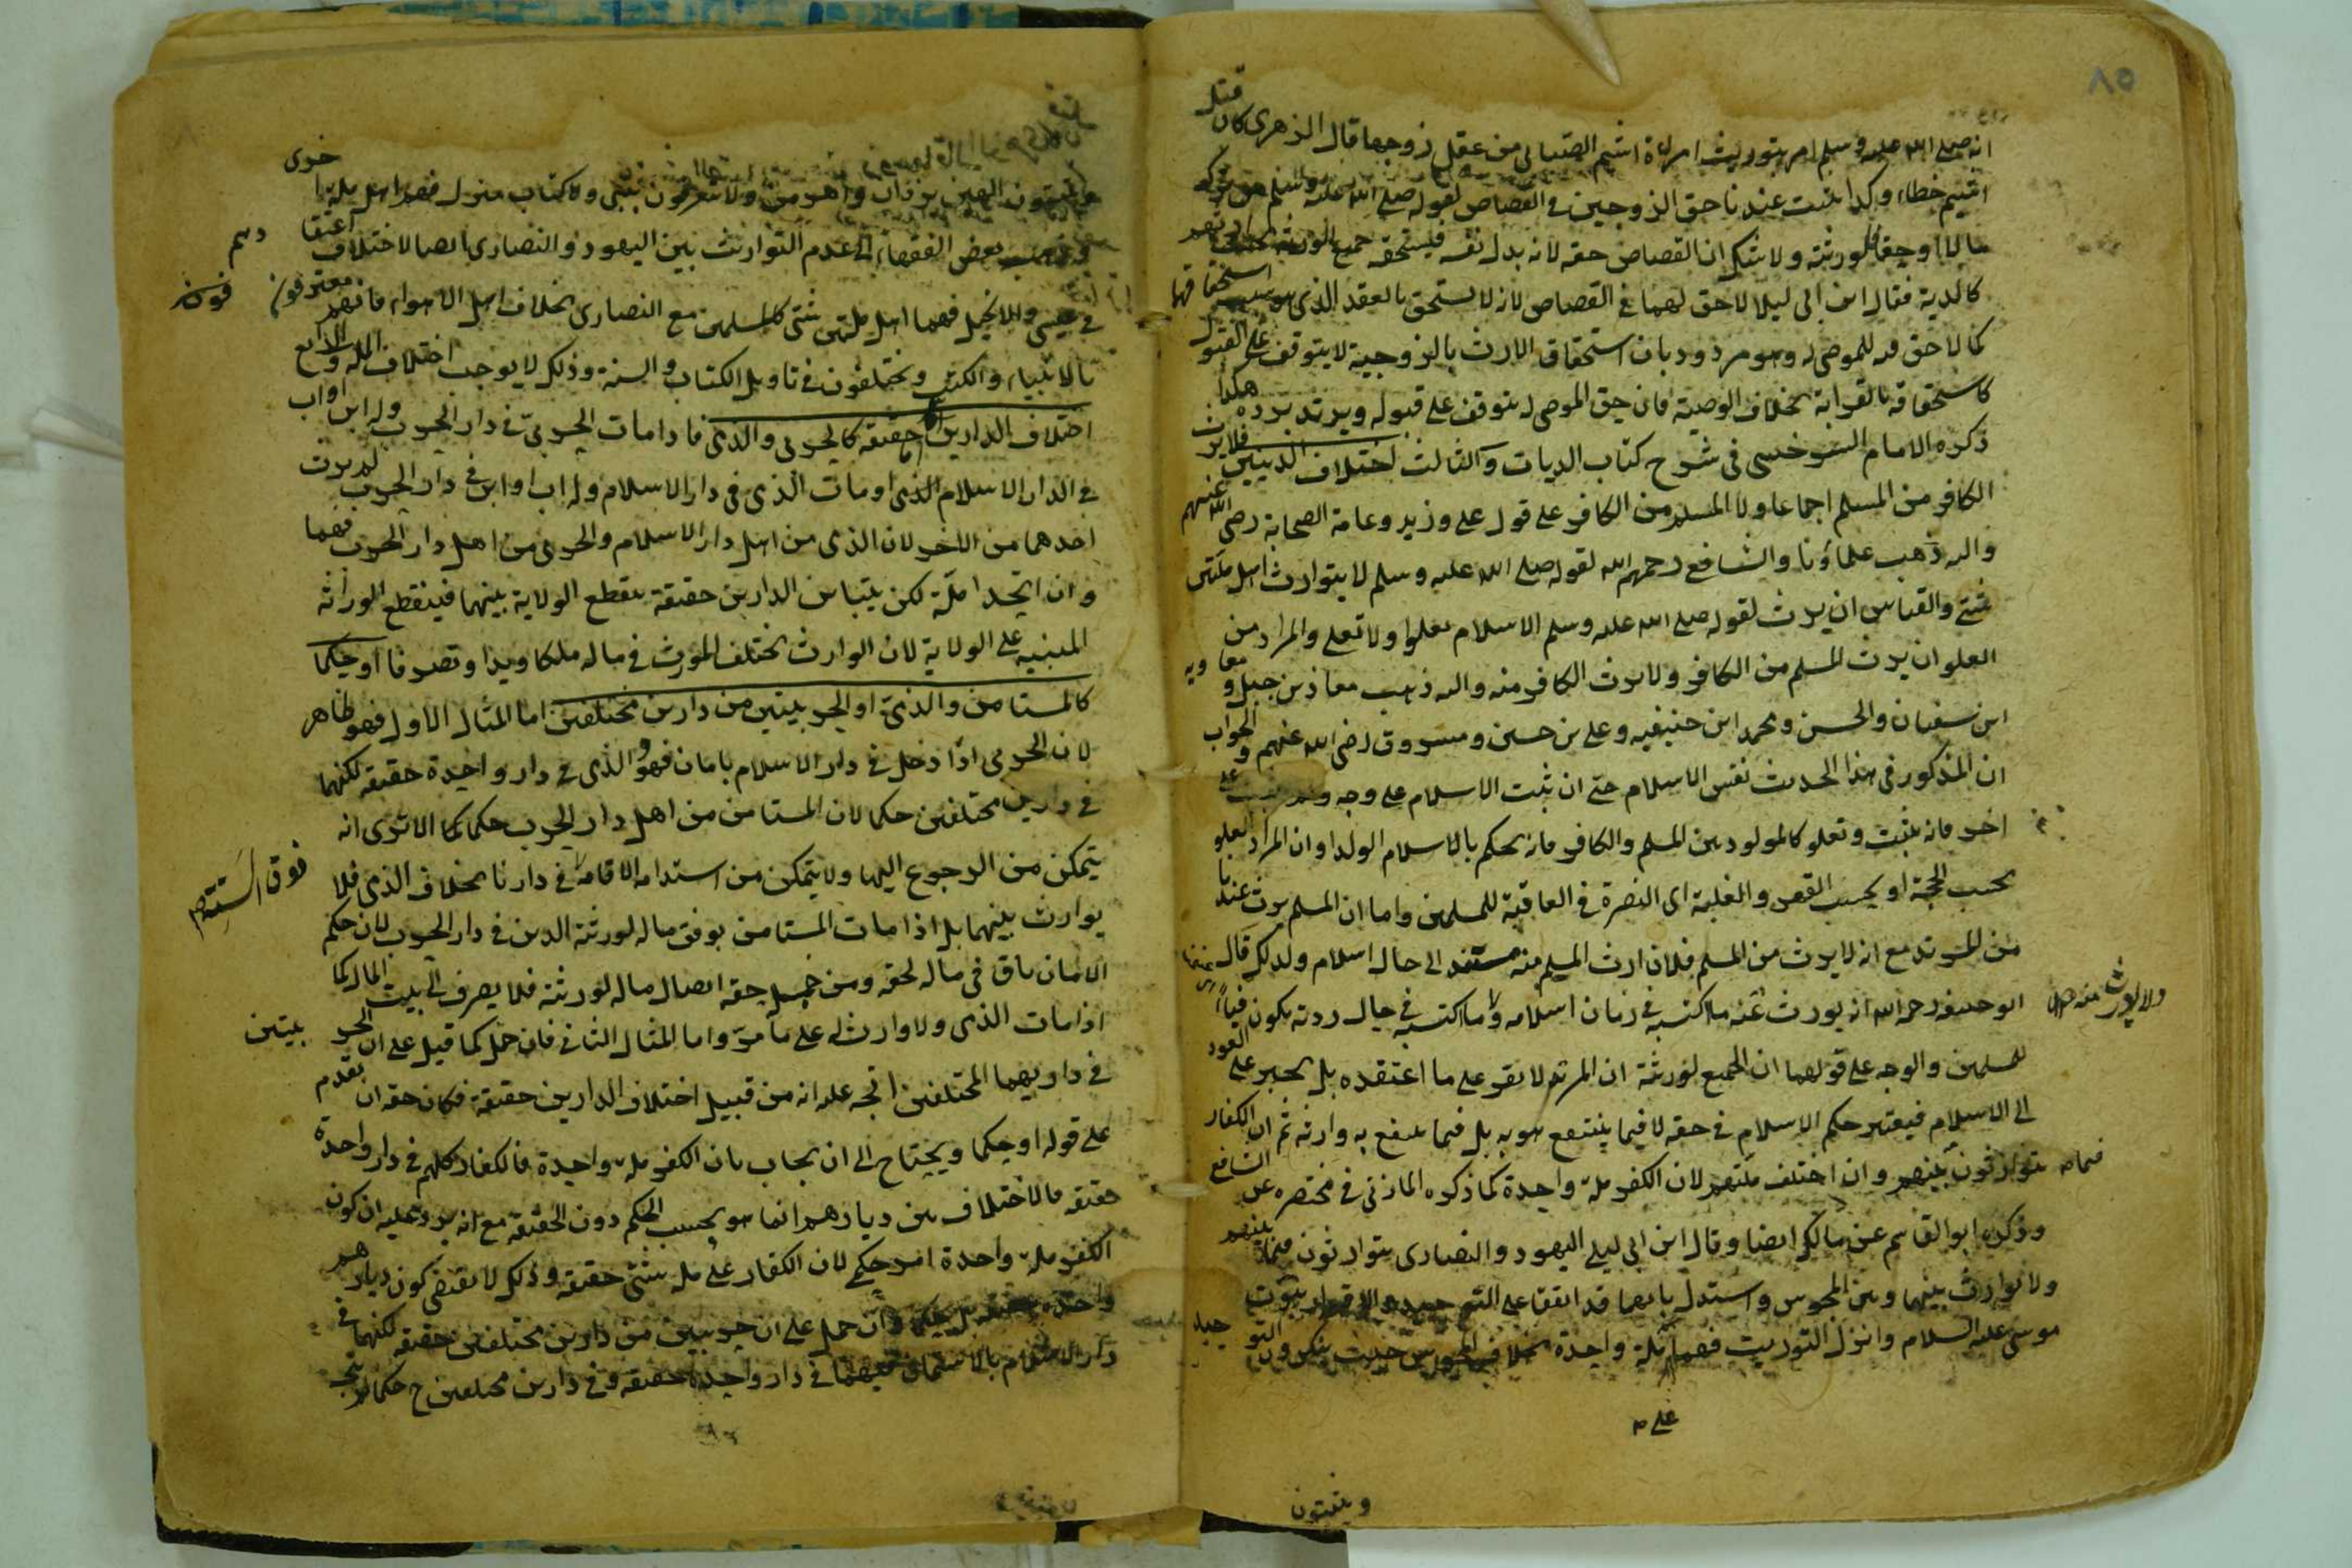 ٨٥
انه صلى الله عليه وسلم امر بتوريث امراة اشيم الضبابى من عقل زوجها قال الزهرى كان قتل
اشيم خطاء وكذا يثبت عندنا حق الزوجين فى القصاص لقوله صلى الله عليه وسلم من ترك
مالا او حقا فلورثته ولا شك ان القصاص حقه لانه بدل نفسه فيستحقه جميع الورثة
كالدية فقال ابن ابى ليلا لا حق لهما فى القصاص لانه لا يستحق بالعقد الذى هو سبب استحقاقها
كما لا حق فيه للموصى له وهو مردود بان استحقاق الارث بالزوجية لا يتوقف على القبول
كاستحقاقه بالقرابة بخلاف الوصية فان حق الموصى له يتوقف على قبوله ويرتد برده هكذا
ذكره الامام السرخسى فى شرح كتاب الديات والثالث اختلاف الدينين فلا يرث
الكافر من المسلم اجماعا ولا المسلم من الكافر على قول على وزيد وعامة الصحابة رضى الله عنهم
واليه ذهب علماؤنا والشافع رحمهم الله لقوله صلى الله عليه وسلم لا يتوارث اهل ملتين
شتى والقياس ان يرث لقوله صلى الله عليه وسلم الاسلام يعلوا ولا تعلى والمراد من
العلو ان يرث المسلم من الكافر ولا يرث الكافر منه واليه ذهب معاذ بن جبل و معاويه
ابن سفيان والحسن ومحمد ابن حنيفيه وعلى بن حسين ومسروق رضى الله عنهم والجواب
ان المذكور فى هذا الحديث نفس الاسلام حتى ان ثبت الاسلام على وجه ولم يثبت على
اخر فانه يثبت وتعلو كالمولود بين المسلم والكافر فانه يحكم بالاسلام الولد او ان المراد العلو
بحسب الحجة او بحسب القهر والغلبة اى النصرة فى العاقبة للمسلمين واما ان المسلم يرث عندنا
من المرتد مع انه لا يرث من المسلم فلان ارث المسلم منه مستند الى حال اسلام ولذلك قال
ابو حنيفه رحمه الله انه يورث عنه ما اكتسبه فى زمان اسلامه ولا ما اكتسبه فى حال ردته يكون فيأ
للمسلمين والوجه على قولهما ان الجميع لورثته ان المرتد لا يقر على ما اعتقده بل يجبر على العود
الى الاسلام فيعتبر حكم الاسلام فى حقه لا فيما ينتفع هو به بل فيما ينتفع به وارثه ثم ان الكفار
يتوارثون بينهم وان اختلف ملتهم لان الكفر ملة واحدة كما ذكره المازنى فى مختصره عن الشافع
وذكره ابو القاسم عن مالك ايضا وقال ابن ابى ليلى اليهود والنصارى يتوارثون بينهم
ولا توارث بينهما وبين المجوس واستدل بانهما قد اتفقا على التوحيد والاقرار بنبوت
موسى عليه السلام وانزل التوريت فهما ملة واحدة بخلاف المجوس حيث ينكرون
على
ويثبتون
ويثبتون الهين يزدان واهرمن ولا يعترفون بنبى ولا كتاب منزل فهم اهل ملة اخرى
وذهب بعض الفقهاء الى عدم التوارث بين اليهود والنصارى ايضا لاختلاف
فى عيسى والانجيل فهما اهل ملتين شتى كالمسلمين مع النصارى بخلاف اهل الاهواء فانهم معترفون
بالانبياء والكتب ويختلفون فى تاويل الكتاب والسنة وذلك لا يوجب اختلاف الملة والرابع
اختلاف الدارين اما حقيقة كالحربى والذمى فاذا مات الحربى فى دار الحرب وله ابن او اب
فى الدار الاسلام الذى او مات الذمى فى دار الاسلام وله اب او ابن فى دار الحرب لم يرث
احدهما من الاخر لان الذمى من اهل دار الاسلام والحربى من اهل دار الحرب فهما
وان اتحدا ملة لكن بتباين الدارين حقيقة ينقطع الولاية بينهما فينقطع الوراثة
المبنيه على الولاية لان الوارث يختلف المورث فى ماله ملكا ويدا وتصرفا او حكما
كالمستامن والذمى او الحربيين من دارين مختلفين اما المثال الاول فهو ظاهر
لان الحربى اذا دخل فى دار الاسلام بامان فهو والذمى فى دار واحدة حقيقة لكنهما
فى دارين مختلفين حكما لان المستامن من اهل دار الحرب حكما الا ترى انه
يتمكن من الرجوع اليها ولا يتمكن من استدامه الاقامة فى دارنا بخلاف الذمى فلا
يوارث بينهما بل اذا مات المستامن يوقف ماله لورثته الذين فى دار الحرب لان حكم
الامان باق فى ماله لحقه ومن جملة حقه ايصال ماله لورثته فلا يصرف الى بيت المال كما
اذا مات الذمى ولا وارث له على ما مر واما المثال الثانى فان حمل كما قيل على ان الحربيين
فى داريهما المختلفين اتجه عليه انه من قبيل اختلاف الدارين حقيقة فكان حقه ان تقدم
على قوله او حكما ويحتاج الى ان يجاب بان الكفر ملة واحدة فالكفار كلهم فى دار واحدة
حقيقة فالاختلاف بين ديارهم انما هو بحسب الحكم دون الحقيقة مع انه يرد عليه ان كون
الكفر ملة واحدة امر حكمى لان الكفار على ملل شتى حقيقة وذلك لا يقتضى كون ديارهم
واحدة حقيقة بل حكما وان حمل على ان حربيين من دارين مختلفين حقيقة لكنهما فى
دار الاسلام بالاستيمان فهما فى دار واحدة حقيقة وفى دارين مختلفين حكما لم يتجه